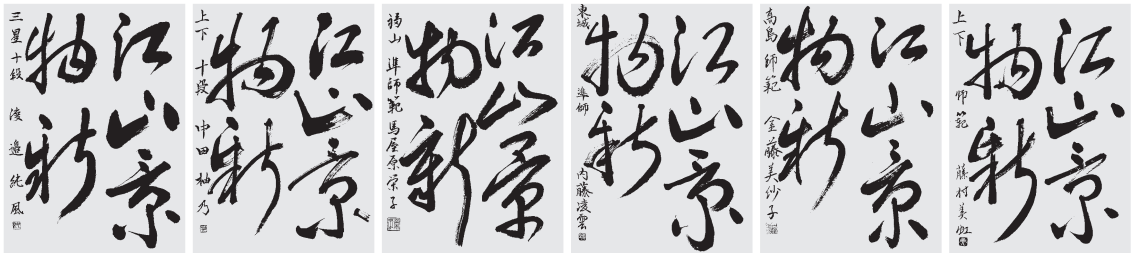 江山景
物新
三星 十段 凌邉純風
江山景
物新
上下 十段 中田柚乃
江山景
物新
福山 準師範 馬屋原栄子
江山景
物新
東城 準師 内藤凌雲
江山景
物新
高島 師範 金藤美紗子
江山景
物新
上下 師範 藤村美虹